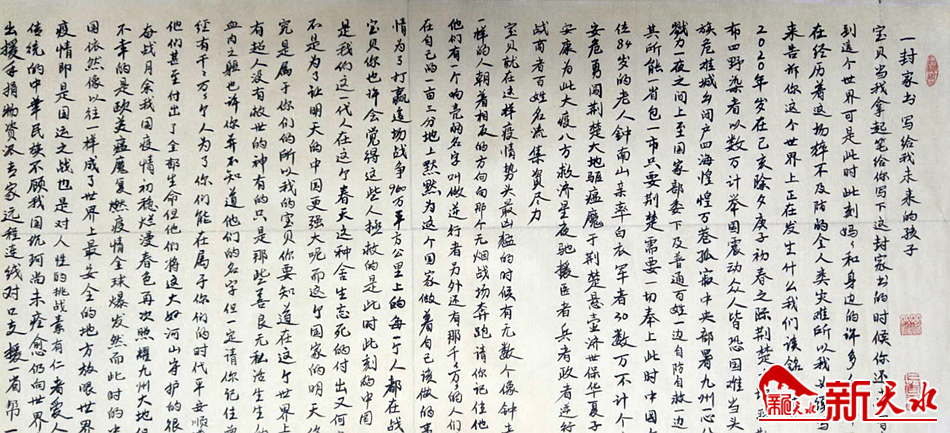 一封家书 写给我未来的孩子
宝贝当我拿起笔给你写下这封家书的时候你还
到这个世界可是此时此刻妈妈和身边的许多
在经历着这场猝不及防的全人类灾难所以我
来告诉你这个世界上正在发生什么我们该铭
2020年岁在己亥除夕庚子初春之际荆楚
布四野染者以数万计举国震动众人皆恐国难当头
族危难城乡闭户四海惶惶万巷孤寂中央部署九州一心
戮力夜之间上至国家部委下及普通百姓一边自防自救一边
其所能省包一市只要荆楚需要一切奉上此时中国
位84岁的老人钟南山亲率白衣军者30数万不计个
安危勇闯荆楚大地驱瘟魔于荆楚悬壶济世保华夏子
安康为此大疫八方救济星夜驰援医者兵者政者逆行
战商者百姓名流集资尽力
宝贝就在这样疫情势头最凶猛的时候有无数个像钟
一样的人朝着相反的方向向那个无烟战场奔跑请你记住他
他们有一个响亮的名字叫做逆行者另外还有那千千万万的人们
在自己的一亩三分地上默默为这个国家做着自己该做的事
情为了打赢这场战争960万平方公里上的每一个人都在战
宝贝你也许会觉得这些人拯救的是此时此刻的中国
是我们这一代人在这个春天这种舍生忘死的付出又何
不是为了让明天的中国更强大呢而这个国家的明天
究竟是属于你们的所以我的宝贝你要知道在这个世界上
有超人没有救世的神有的只是那些善良无私活生生
血肉之躯也许你并不知道他们的名字但一定请你记住
经有千千万万个人为了你们能在属于你们的时代平安顺
他们甚至付出了全部生命但他们将这大好河山守护的很
奋战月余我国疫情初稳烂漫春色再次照耀九州大地
不幸的是欧美瘟魔复燃疫情全球爆发然而此时的中
国依然像以往一样成了世界上最安全的地方放眼世界
疫情即是国运之战也是对人性的挑战素有仁者爱人
传统的中华民族不顾我国沉疴尚未痊愈仍向世界
出援手捐物资派专家远程连线对口支援一省帮一
新天水